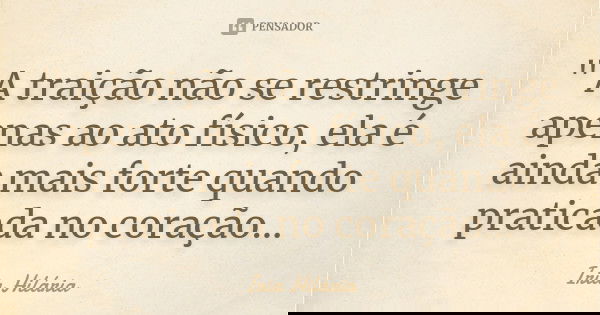 PENSADOR
"A traição não se restringe
apenas ao ato físico, ela é
ainda mais forte quando
praticada no coração...
Hilária